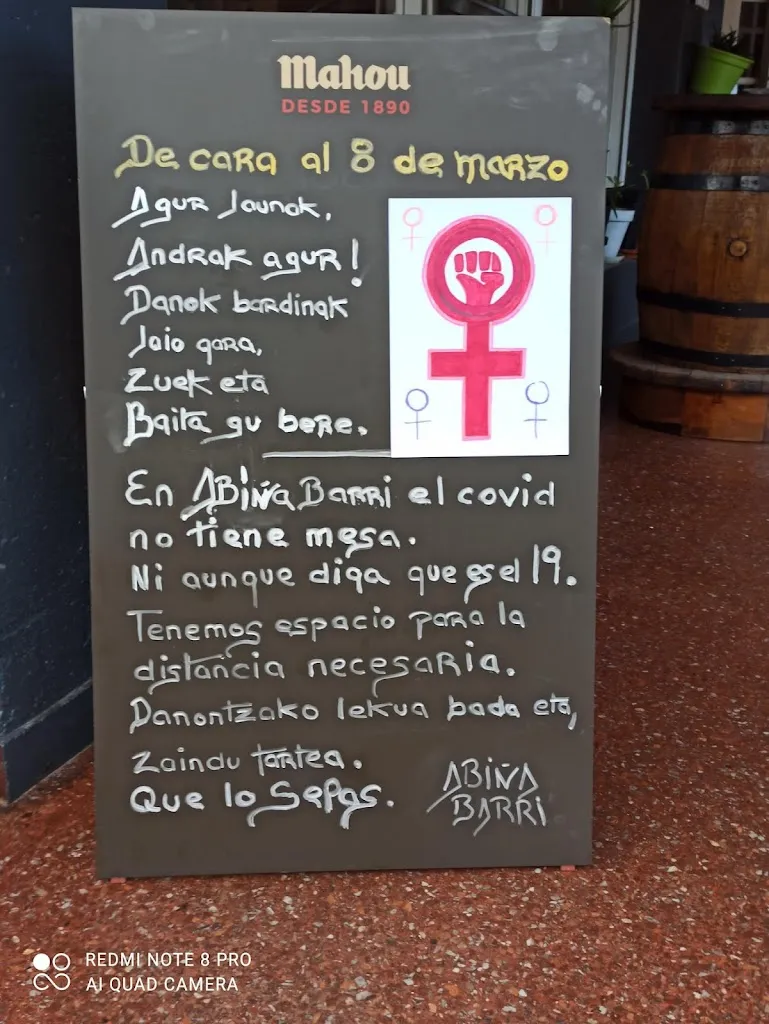 Mahou
DESDE 1890
De cara al 8 de marzo
Agur Jaunak,
Andrak agur!
Danok bardinak
Jaio gara,
Zuek eta
Baita gu bere.
En ABiÑA BARRi el covid
no tiene mesa.
Ni aunque diga que es el 19.
Tenemos espacio para la
distancia necesaria.
Danontzako lekua bada eta,
Zaindu tartea.
Que lo Sepas.
ABIÑA
BARRI
REDMI NOTE 8 PRO
AI QUAD CAMERA